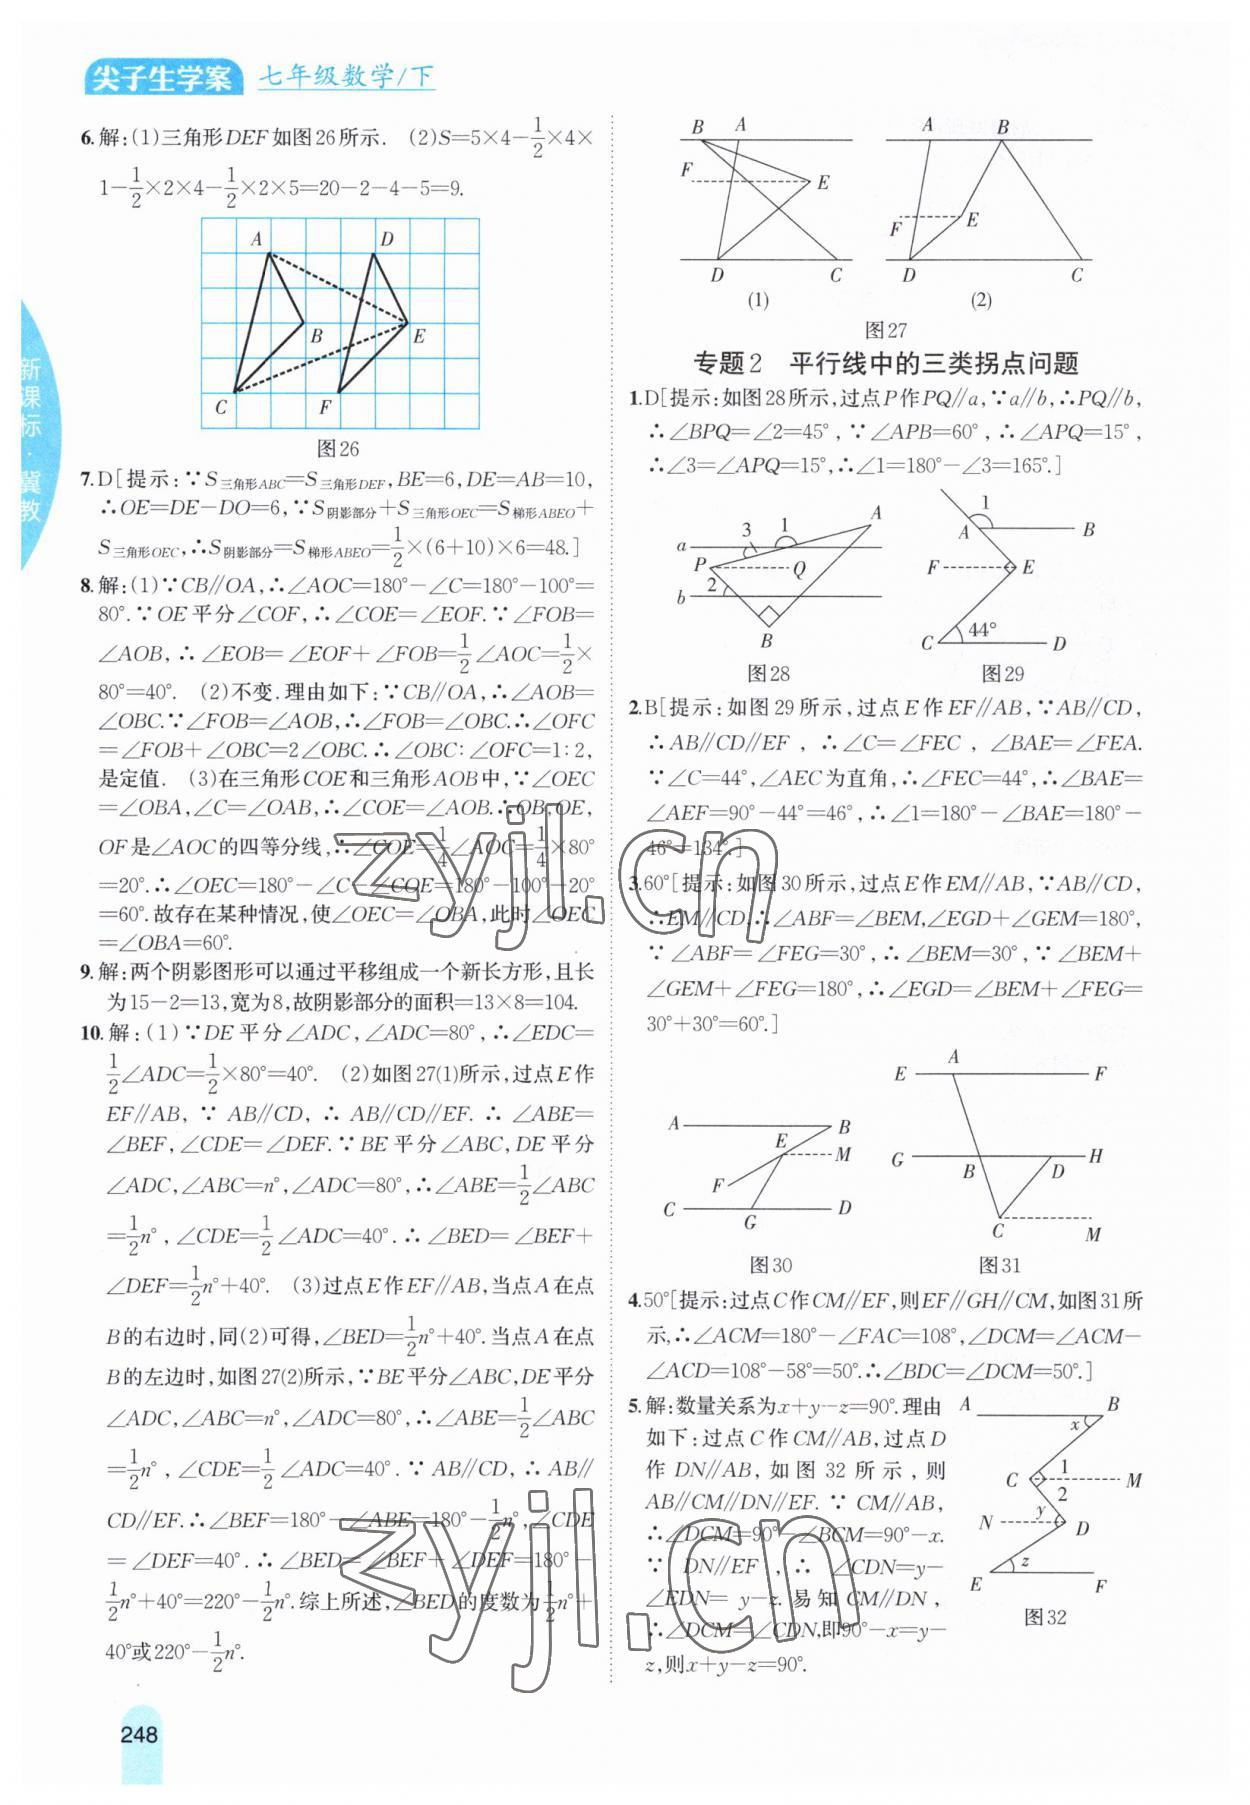 尖子生学案 七年级数学/下
新课标·冀教
6.解:(1)三角形DEF如图26所示. (2)S=5×4-1/2×4×
1-1/2×2×4-1/2×2×5=20-2-4-5=9.
A D
B E
C F
图26
7.D[提示:∵S三角形ABC=S三角形DEF,BE=6,DE=AB=10,
∴OE=DE-DO=6,∵S阴影部分+S三角形OEC=S梯形ABEO+
S三角形OEC,∴S阴影部分=S梯形ABEO=1/2×(6+10)×6=48.]
8.解:(1)∵CB∥OA,∴∠AOC=180°-∠C=180°-100°=
80°.∵OE平分∠COF,∴∠COE=∠EOF.∵∠FOB=
∠AOB,∴∠EOB=∠EOF+∠FOB=1/2∠AOC=1/2×
80°=40°. (2)不变.理由如下:∵CB∥OA,∴∠AOB=
∠OBC.∵∠FOB=∠AOB,∴∠FOB=∠OBC.∴∠OFC
=∠FOB+∠OBC=2∠OBC.∴∠OBC∶∠OFC=1∶2,
是定值. (3)在三角形COE和三角形AOB中,∵∠OEC
=∠OBA,∠C=∠OAB,∴∠COE=∠AOB.∴OB,OE,
OF是∠AOC的四等分线,∴∠COE=1/4∠AOC=1/4×80°
=20°.∴∠OEC=180°-∠C-∠COE=180°-100°-20°
=60°.故存在某种情况,使∠OEC=∠OBA,此时∠OEC
=∠OBA=60°.
9.解:两个阴影图形可以通过平移组成一个新长方形,且长
为15-2=13,宽为8,故阴影部分的面积=13×8=104.
10.解:(1)∵DE平分∠ADC,∠ADC=80°,∴∠EDC=
1/2∠ADC=1/2×80°=40°. (2)如图27(1)所示,过点E作
EF∥AB,∵AB∥CD,∴AB∥CD∥EF.∴∠ABE=
∠BEF,∠CDE=∠DEF.∵BE平分∠ABC,DE平分
∠ADC,∠ABC=n°,∠ADC=80°,∴∠ABE=1/2∠ABC
=1/2n°,∠CDE=1/2∠ADC=40°.∴∠BED=∠BEF+
∠DEF=1/2n°+40°. (3)过点E作EF∥AB,当点A在点
B的右边时,同(2)可得,∠BED=1/2n°+40°.当点A在点
B的左边时,如图27(2)所示,∵BE平分∠ABC,DE平分
∠ADC,∠ABC=n°,∠ADC=80°,∴∠ABE=1/2∠ABC
=1/2n°,∠CDE=1/2∠ADC=40°.∵AB∥CD,∴AB∥
CD∥EF.∴∠BEF=180°-∠ABE=180°-1/2n°,∠CDE
=∠DEF=40°.∴∠BED=∠BEF+∠DEF=180°-
1/2n°+40°=220°-1/2n°.综上所述,∠BED的度数为1/2n°+
40°或220°-1/2n°.
248
B A A B
F E F E
D C D C
(1) (2)
图27
专题2 平行线中的三类拐点问题
1.D[提示:如图28所示,过点P作PQ∥a,∵a∥b,∴PQ∥b,
∴∠BPQ=∠2=45°,∵∠APB=60°,∴∠APQ=15°,
∴∠3=∠APQ=15°,∴∠1=180°-∠3=165°.]
3 1 A
a
P Q
2
b
B
图28
1
A B
F E
44°
C D
图29
2.B[提示:如图29所示,过点E作EF∥AB,∵AB∥CD,
∴AB∥CD∥EF,∴∠C=∠FEC,∠BAE=∠FEA.
∵∠C=44°,∠AEC为直角,∴∠FEC=44°,∴∠BAE=
∠AEF=90°-44°=46°,∴∠1=180°-∠BAE=180°-
46°=134°.]
3.60°[提示:如图30所示,过点E作EM∥AB,∵AB∥CD,
∴EM∥CD.∴∠ABF=∠BEM,∠EGD+∠GEM=180°,
∵∠ABF=∠FEG=30°,∴∠BEM=30°,∵∠BEM+
∠GEM+∠FEG=180°,∴∠EGD=∠BEM+∠FEG=
30°+30°=60°.]
A B
E M
F
C G D
图30
A
E F
G B D H
C M
图31
4.50°[提示:过点C作CM∥EF,则EF∥GH∥CM,如图31所
示,∴∠ACM=180°-∠FAC=108°,∠DCM=∠ACM-
∠ACD=108°-58°=50°.∴∠BDC=∠DCM=50°.]
5.解:数量关系为x+y-z=90°.理由
如下:过点C作CM∥AB,过点D
作DN∥AB,如图32所示,则
AB∥CM∥DN∥EF.∵CM∥AB,
∴∠DCM=90°-∠BCM=90°-x.
∵DN∥EF,∴∠CDN=y-
∠EDN=y-z.易知CM∥DN,
∴∠DCM=∠CDN,即90°-x=y-
z,则x+y-z=90°.
A B
x
C 1 M
2
N y D
z
E F
图32
zyjl.cn
zyjl.cn